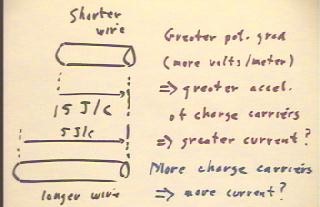 Shorter
wire
15 J/C
5 J/C
longer wire
Greater pot. grad
(more volts/meter)
=> greater accel.
of charge carriers
=> greater current?
More charge carriers
=> more current?